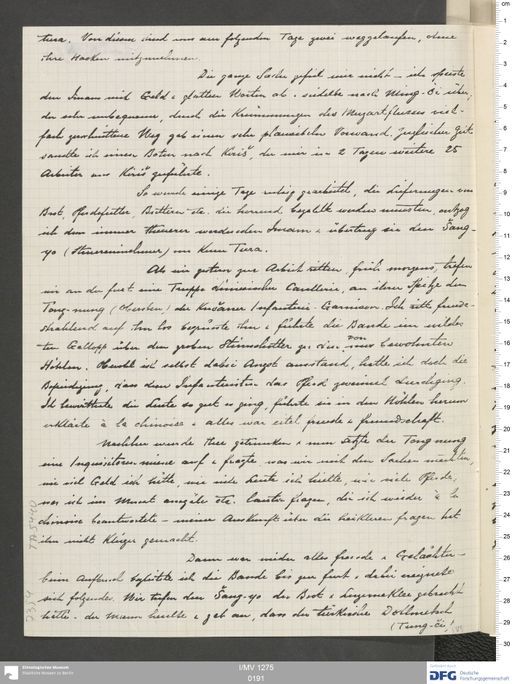 tura. Von diesen sind uns am folgenden Tage zwei weggelaufen, ohne
ihre Hacken mitzunehmen.
Die ganze Sache gefiel mir nicht – ich speiste
den Imam mit Geld & glatten Worten ab & siedelte nach Ming-Öi über,
der sehr unbequeme, durch die Krümmungen des Muzartflusses viel-
fach geschnittene Weg gab einen sehr plausiblen Vorwand. Zugleicher Zeit
sandte ich einen Boten nach Kiriš, der mir in 2 Tagen weitere 25
Arbeiter aus Kiriš zuführte.
So wurde einige Tage ruhig gearbeitet, die Lieferungen von
Brot, Pferdefutter, Brettern etc. die horrend bezahlt werden mussten, entzog
ich dem immer theuerer werdenden Imam & übertrug sie dem Šang-
yo (Steuereinnehmer) von Kum Tura.
Als wir gestern zur Arbeit ritten, früh morgens, trafen
wir an der furt eine Truppe chinesischer Cavallerie, an ihrer Spitze den
Tong-ning (Obersten) der Kučaner Infanterie Garnison. Ich ritt freude-
strahlend auf ihn los begrüsste ihn & führte die Bande im wilden
ten Gallopp über den groben zu den von uns bewohnten
Höhlen. Obwohl ich selbst dabei Angst ausstand, hatte ich doch die
Befriedigung, dass dem Infanteristen das Pferd zweimal durchging.
Ich bewirthete die Leute so gut es ging, führte sie in den Höhlen herum
erklärte à la chinoise & alles war eitel freude & freundschaft.
Nachher wurde Thee getrunken & nun setzte der Tong ning
eine Inquisitorenmiene auf & fragte, was wir mit den Sachen machten,
wie viel Geld ich hätte, wie viele Leute ich hielte, wie viele Pferde,
was ich im Monat ausgäbe etc. lauter fragen, die ich wieder à la
chinoise beantwortete – meine Auskunft über die heikleren fragen hat
ihn nicht klüger gemacht.
Dann war wieder alles freude & Gelächter –
beim Aufbruch begleitete ich die Bande bis zur furt & dabei ereignete
sich folgendes. Wir trafen den Šang-yo der Brot & Luzernklee gebracht
hatte. der Mann heulte & gab an, dass der türkische Dolmetsch
(Tung-či)
TA 5440
I/MV 1275
0191
Ethnologisches Museum
Staatliche Museen zu Berlin
DFG Deutsche
Forschungsgemeinschaft